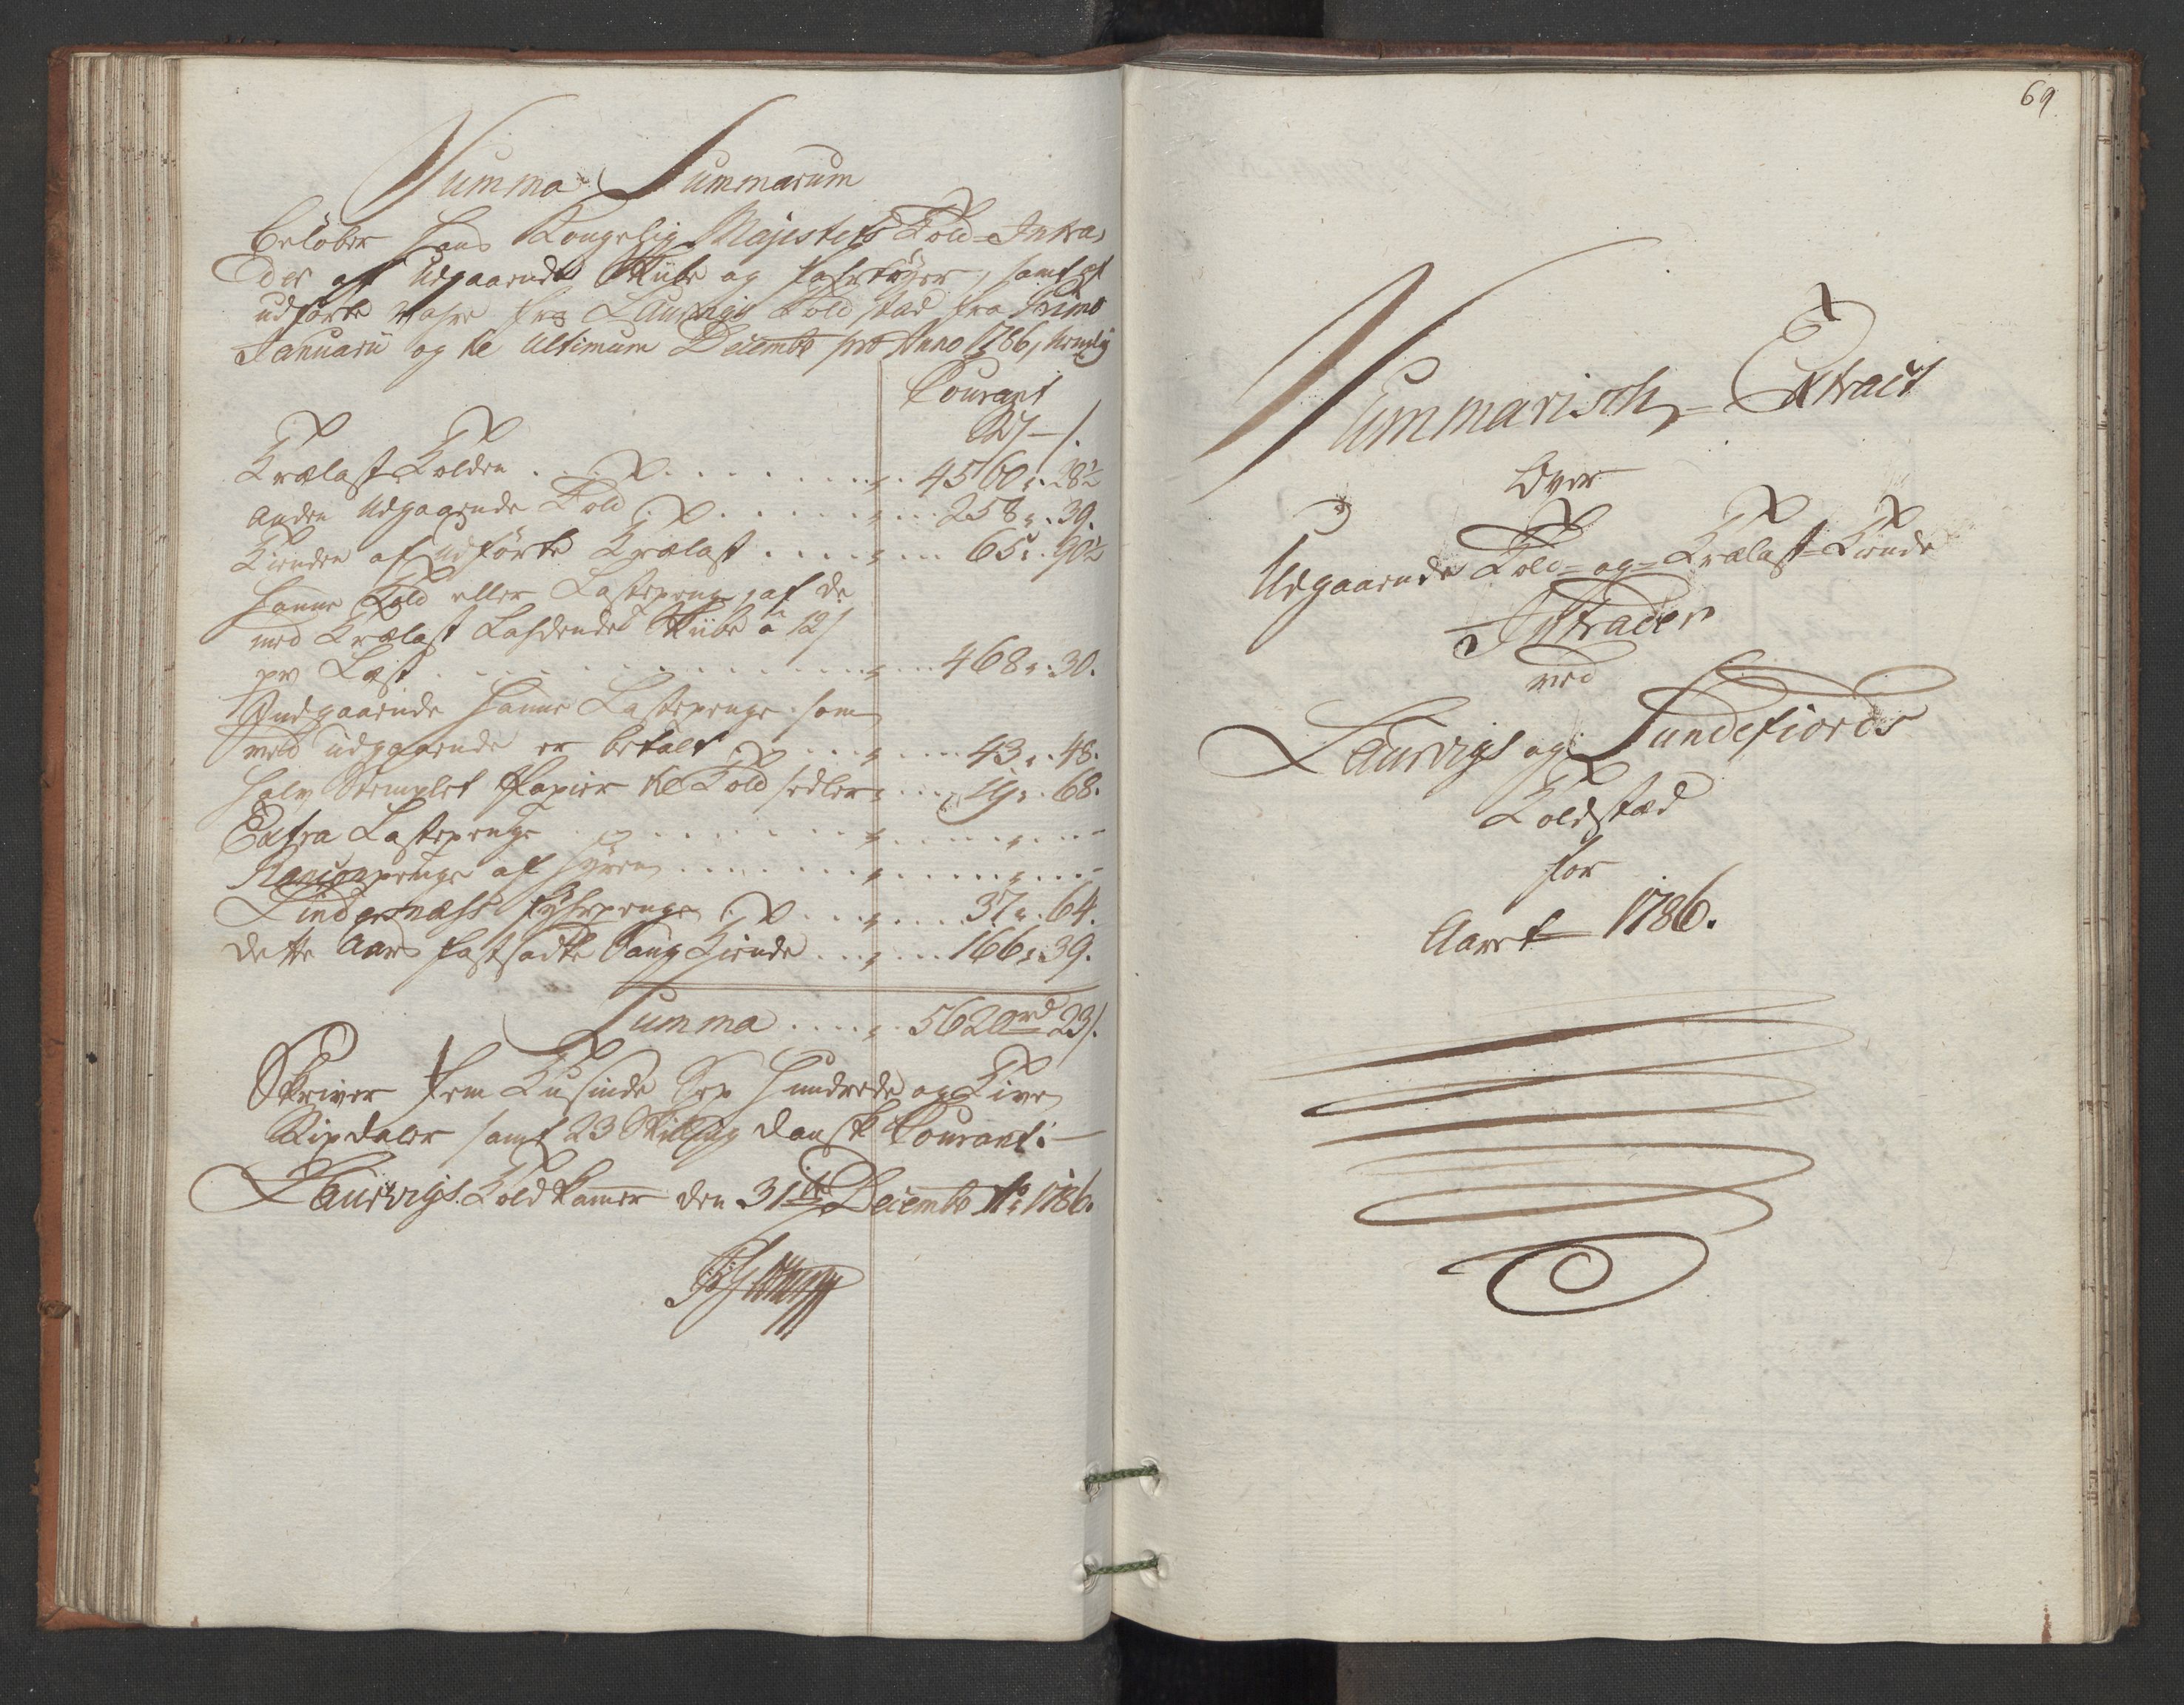 Summa Summarum
Beløber Hans Kongelig Majestets Told-Intra,
der af Udgaaende Skibe og Fahrtøyer, samt af
udførte Vahre fra Laurvigs Toldstæd fra Primo
Januarii og til Ultimum Decembr pro Anno 1786, nemlig
Courant
Rd - s.
Trælast Tolden . . . . 4560 " 28½
Anden Udgaaende Told . . . . 258 " 39.
Tienden af udførte Trælast . . . . 65 " 90½
Hanne Told eller Lastepenge, af de
med Trælast Lahdende Skibe a 12 s
pr Læst . . . . 468 " 30.
Indgaaende Hanne Lastepenge som
ved udgaaende er betalt . . . . 43 " 48.
Halv Stemplet Papier til Told sedler . . . 19 " 68.
Extra Lastepenge . . . . " . . . -
Rancionpenge af Hyren . . . . " . . . -
Lindesnæss Fyhrpenge . . . . 37 " 64.
dette Aars fastsadte Saug Tiende . . . 166 " 39.
Summa . . . . 5620 rd 23 s.
Skriver Fem Tusinde Sex Hundrede og Tive
Rixdaler samt 23 Skilling dansk Courant: -
Laurvigs Toldkamer den 31te Decembr Ao 1786.
69
Summarisch- Extract
Over
Udgaaende Told- og- Trælast- Tiende
Intrader
ved
Laurvigs og Sandefiords
Toldstæd
for
Aaret 1786.